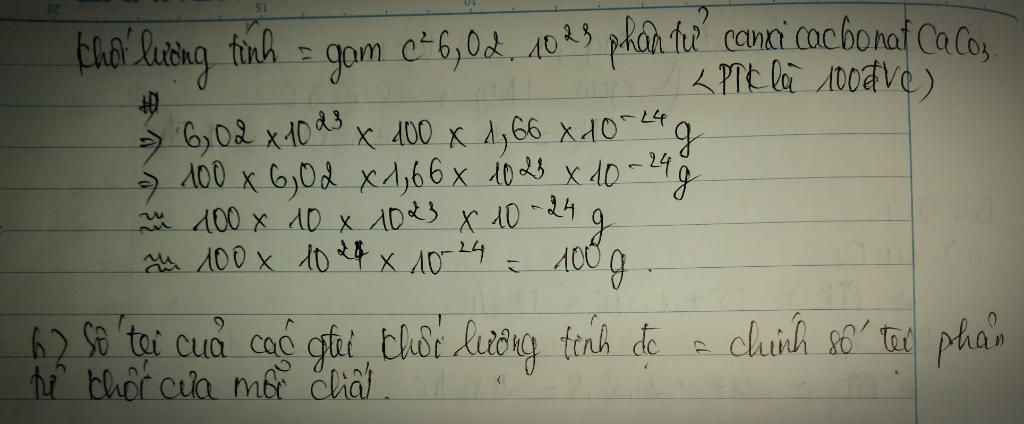 Khối lượng tính = gam c² 6,02. 10²³ phân tử canxi cacbonat CaCO₃
<PTK là 100đVC)
⇒ 6,02 × 10²³ × 100 × 1,66 × 10⁻²⁴g
⇒ 100 × 6,02 × 1,66 × 10²³ × 10⁻²⁴g
≈ 100 × 10 × 10²³ × 10⁻²⁴ g
≈ 100 × 10²⁴ × 10⁻²⁴ = 100g.
b) Số trị của các gtrị khối lượng tính đc = chính số trị phân
tử khối của mỗi chất.